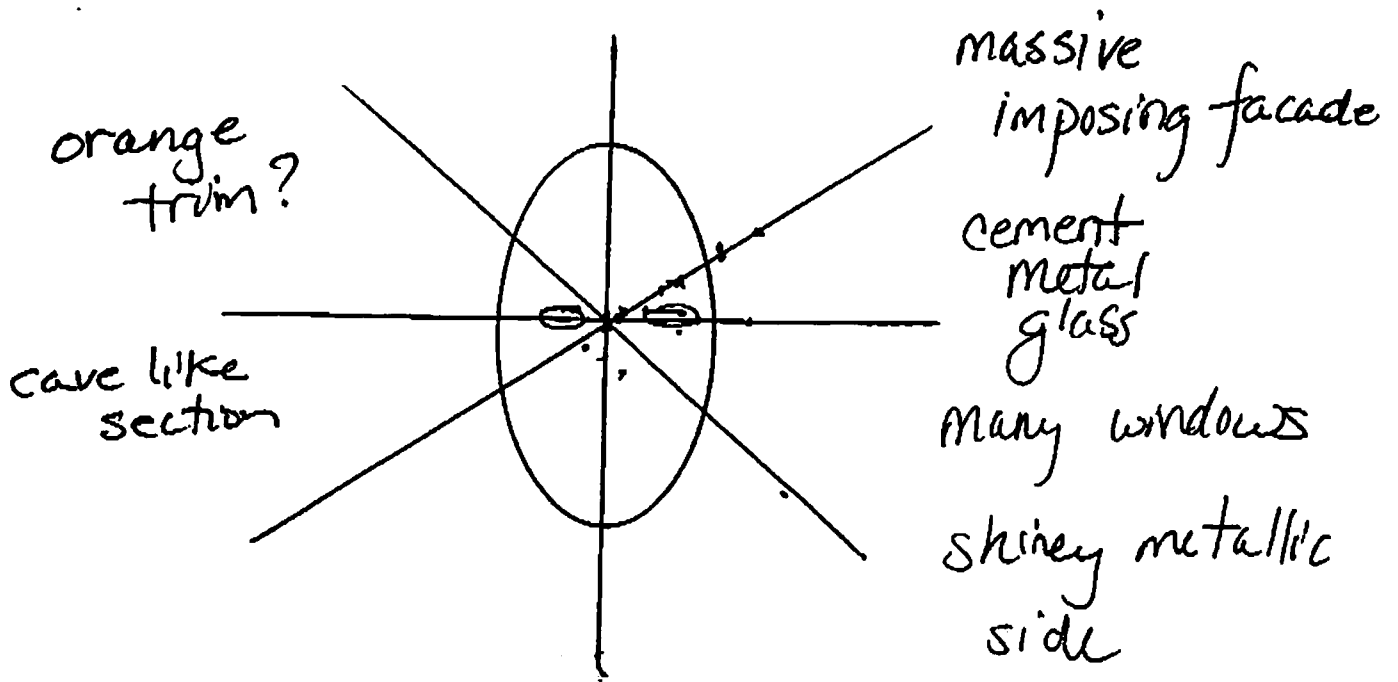 orange
trim?
cave like
section
massive
imposing facade
cement
metal
glass
many windows
shiney metallic
side